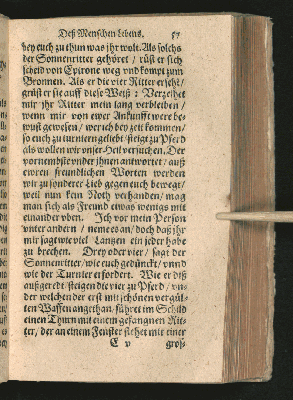 Deß Menschen Lebens. 57
bey euch zu thun was jhr wolt. Als solchs
der Sonnenritter gehöret / rüst er sich
scheid von Epirone weg vnd kompt zum
Bronnen. Als er die vier Ritter ersiht /
grüst er sie auff diese Weiß: Verzeihet
mir jhr Ritter mein lang verbleiben /
wenn mir von ewer Ankunfft were be-
wust gewesen / wer ich bey zeit kommen /
so euch zu turnieren geliebt / steigt zu Pferd
als wollen wir vnser Heil versuchen. Der
vornembste vnder jhnen antwortet / auß
ewren freundlichen Worten werden
wir zu sonderer Lieb gegen euch bewegt /
weil nun kein Noth verhanden / mag
man sich als Freund etwas wenigs mit
einander vben. Ich vor mein Person
vnter andern / neme es an / doch daß jhr
mir sagt wie viel Lanzen ein jeder habe
zu brechen. Drey oder vier / sagt der
Sonnenritter / wie euch gedünckt / vnnd
wie der Turnier erfordert. Wie er diß
außgeredt / steigen die vier zu Pferd / vn-
der welchen der erst mit schönen vergül-
ten Waffen angethan / führet im Schild
einen Thurn mit einem gefangnen Rit-
ter, der an einem Fenster stehet mit einer
E v groß-